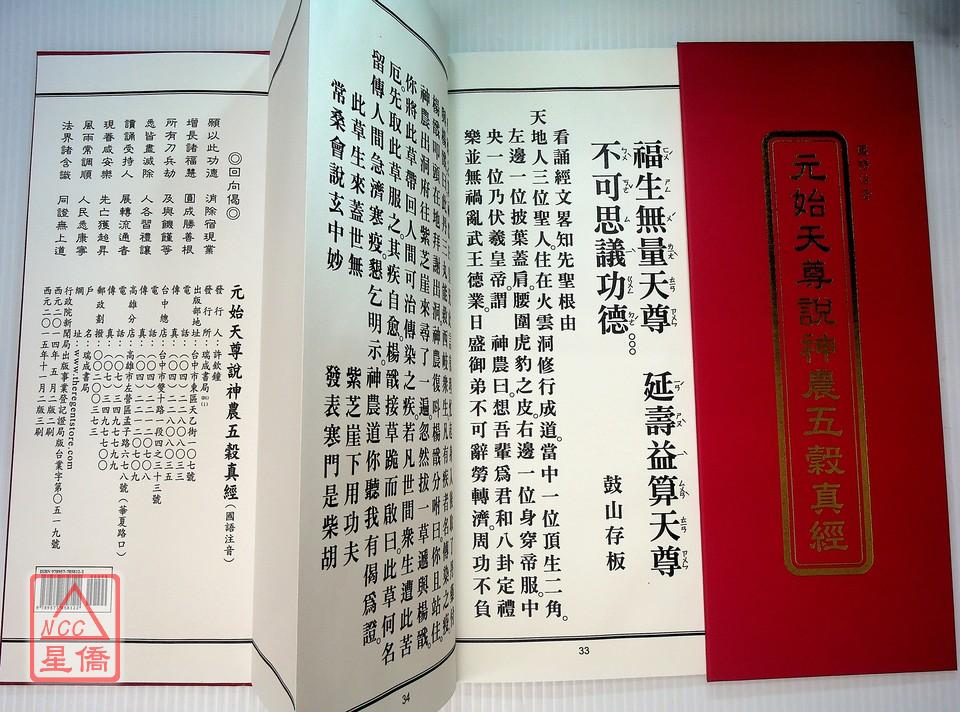 國語注音
元始天尊說神農五穀真經
福生無量天尊 延壽益算天尊
不可思議功德○○○ 鼓山存板
看誦經文畧知先聖根由
天地人三位聖人。住在火雲洞修行成道。當中一位頂生二角。
左邊一位披葉蓋肩。腰圍虎豹之皮。右邊一位身穿帝服。中
央一位乃伏羲皇帝。謂 神農曰。想吾輩爲君和八卦定禮
樂並無禍亂武王德業。日盛御弟不可辭勞轉濟。周功不負
33
楊戩叩頭在地拜謝出洞神農復呌楊戩分咐曰。你且站住。
神農出洞府往紫芝崖來尋了一遍。忽然拔一草遞與楊戩。
你將此草帶回人間可治傳染之疾。若凡世間衆生遭此苦
厄。先取此草服之。其疾自愈。楊戩接草跪而啟曰此草何名
留傳人間急濟寒疫。懇乞明示。神農道你聽我有偈爲證。
此草生來蓋世無 紫芝崖下用功夫
常桑會說玄中妙 發表寒門是柴胡
34
◎回向偈◎
願以此功德 消除宿現業
增長諸福慧 圓成勝善根
所有刀兵劫 及與饑饉等
悉皆盡滅除 人各習禮讓
讀誦受持人 展轉流通者
現眷咸安樂 先亡獲超昇
風雨常調順 人民悉康寧
法界諸含識 同證無上道
元始天尊說神農五穀真經(國語注音)
發行人:許欽鐘
發行所:瑞成書局
出版部地址:台中市東區天乙街一○七號
台中總店:台中市雙十路一段四之三十三號
高雄分店:高雄市左營區孟子路六七八號(華夏路口)
戶名:瑞成書局
網址:www.theregentstore.com
行政院新聞局出版事業登記證局版台業字第○五一九號
西元二○一四年五月二版二刷
西元二○一五年十一月二版三刷
NCC
星僑